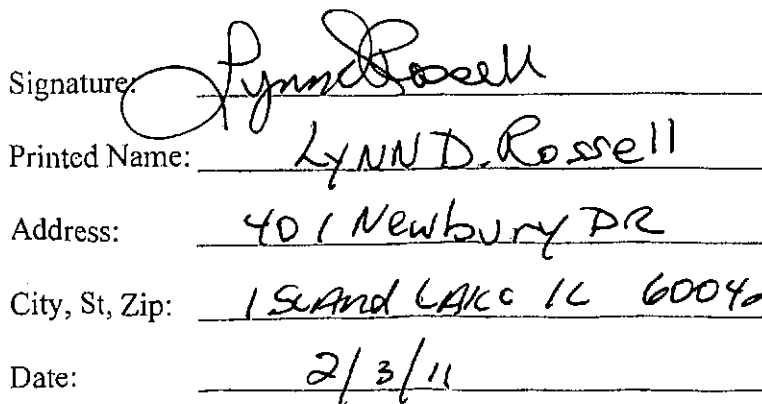 Signature: Lynn D Rossell
Printed Name: LYNN D. Rossell
Address: 401 Newbury DR
City, St, Zip: ISLAnd LAKe IL 60042
Date: 2/3/11